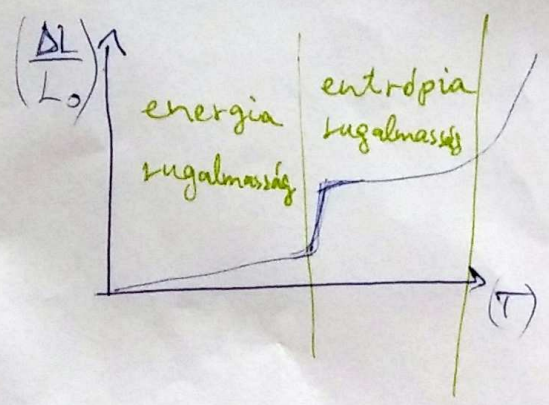 (ΔL/L₀)
energia
rugalmasság
entrópia
rugalmasság
(T)